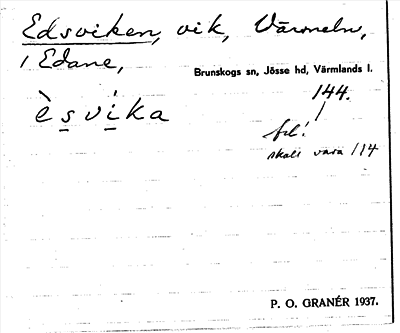 Edsviken, vik, Värmeln,
i Edane,
Brunskogs sn, Jösse hd, Värmlands l.
144.
èsvika
fel!
skall vara 114
P. O. GRANÉR 1937.